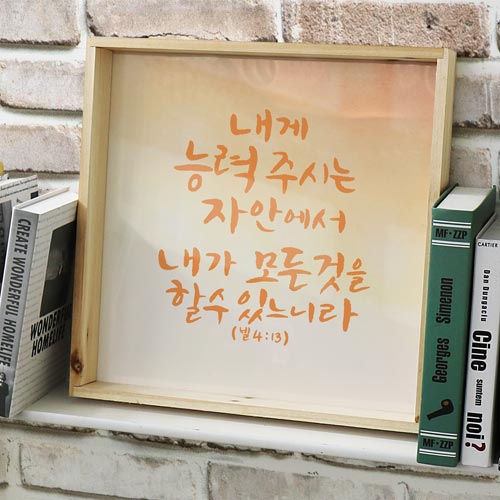 내게
능력 주시는
자 안에서
내가 모든것을
할수 있느니라
(빌 4:13)
CREATE
WONDERFUL
HOMELIFE
WONDERFUL
HOMELIFE
MF·ZZP
Georges Simenon
MF·ZZP
CARTIER
Dan Dungaciu
Cine
suntem
noi?